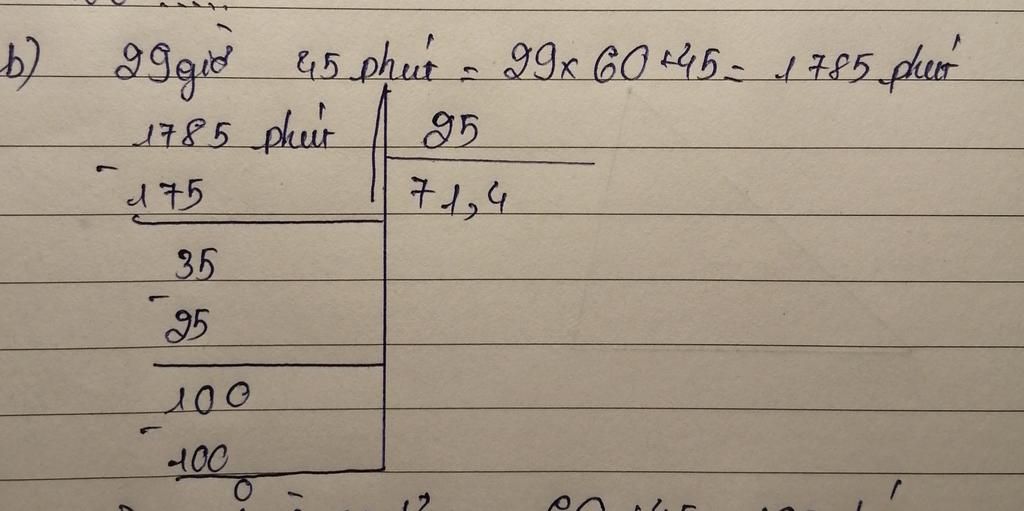 b) 29 giờ 45 phút = 29 x 60 + 45 = 1785 phút
1785 phút 25
- 175 71,4
35
- 25
100
- 100
0